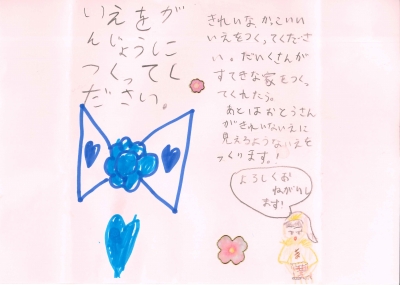 いえをが
んじょうに
つくってく
ださい。
きれいな、かっこいい
いえをつくってくださ
い。だいくさんが
すてきな家をつくっ
てくれたら。
あとはおとうさん
がきれいないえに
見えるようないえを
つくります。!
よろしくお
ねがいし
ます!